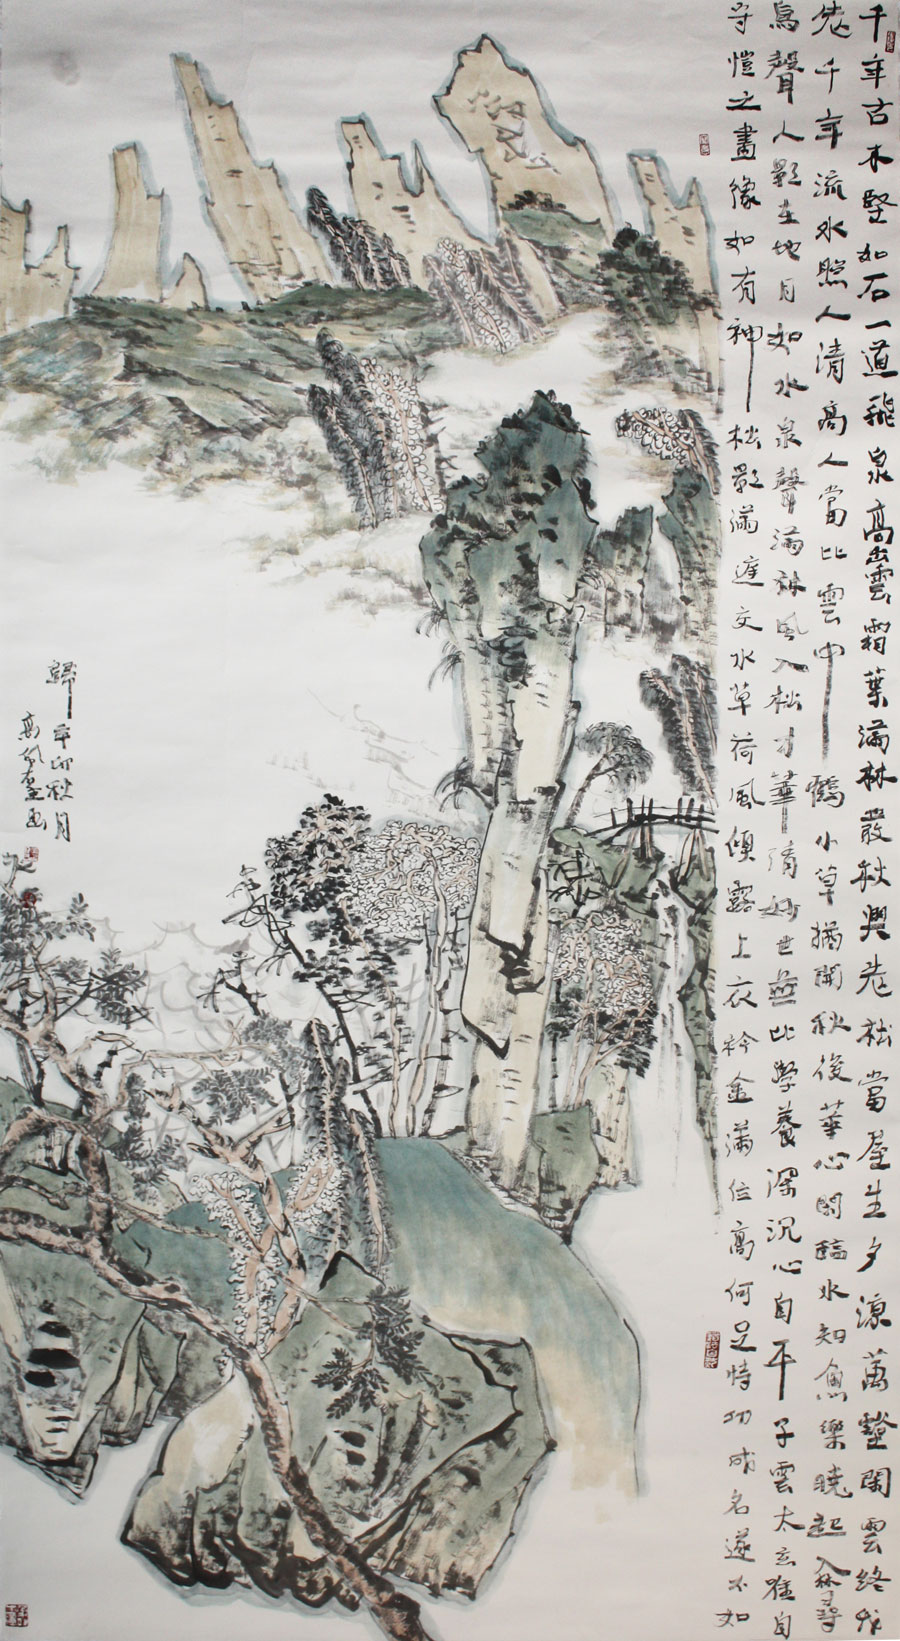 千年古木堅如石一道飛泉高出雲霜葉滿林叢秋興老松當屋生夕涼萬壑閑雲終成
老千年流水照人清高人當比雲中鶴小草猶開秋後華心閑臨水知魚樂曉起入林尋
鳥聲人影在地月如水泉聲滿林風入松才華清妙世無比學養深沉心自平子雲太玄難自
守愷之畫像如有神松影滿庭交水草荷風傾露上衣衿金滿位高何足恃功成名遂不如
歸辛卯秋月